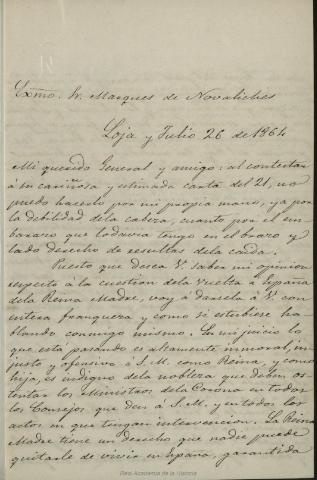 Exmo. Sr. Marques de Novaliches
Loja y Julio 26 de 1864
Mi querido General y amigo: al contestar
á su cariñosa y estimada carta del 21, no
puedo hacerlo por mi propia mano, ya por
la debilidad de la cabeza, cuanto por el em-
barazo que todavia tengo en el brazo y
lado derecho de resultas de la caida.
Puesto que desea V. saber mi opinion
respecto á la cuestion de la vuelta a España
de la Reina Madre, voy á darsela á V. con
entera franqueza y como si estubiese ha-
blando conmigo mismo. En mi juicio lo
que está pasando es altamente inmoral, in-
justo y ofensivo á S.M. como Reina, y como
hija, es indigno de la nobleza que deben os-
tentar los Ministros de la Corona en todos
los Consejos que den á S.M. y en todos los
actos en que tengan intervencion. La Reina
Madre tiene un derecho que nadie puede
quitarle de vivir en España, garantida
Real Academia de la Historia